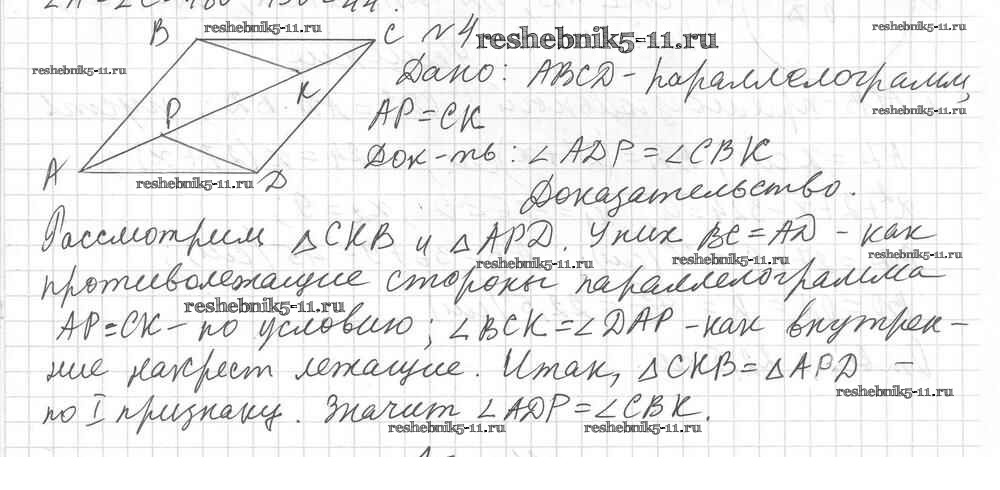 B
reshebnik5-11.ru
C
№4
reshebnik5-11.ru
reshebnik5-11.ru
reshebnik5-11.ru
Дано: ABCD - параллелограмм,
K
P
AP=CK
reshebnik5-11.ru
Док-ть: ∠ADP=∠CBK
A
reshebnik5-11.ru
D
Доказательство.
Рассмотрим △CKB и △APD. У них BC=AD - как
reshebnik5-11.ru
reshebnik5-11.ru
reshebnik5-11.ru
противолежащие стороны параллелограмма
reshebnik5-11.ru
AP=CK - по условию; ∠BCK=∠DAP - как внутрен-
ние накрест лежащие. Итак, △CKB=△APD -
reshebnik5-11.ru
по I признаку. Значит ∠ADP=∠CBK.
reshebnik5-11.ru
reshebnik5-11.ru